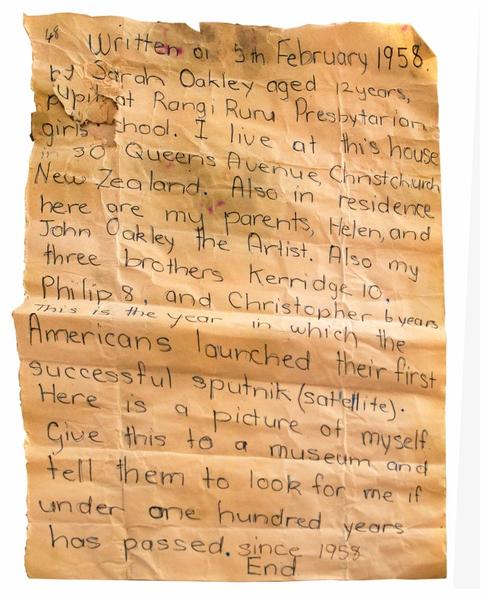 48
Written on 5th February 1958.
by Sarah Oakley aged 12years,
pupil at Rangi Ruru Presbytarian
girls chool. I live at this house
in 30 Queens Avenue, Christchurch
New Zealand. Also in residence
here are my parents, Helen, and
John Oakley the Artist. Also my
three brothers Kerridge 10,
Philip 8, and Christopher 6years
This is the year in which the
Americans launched their first
successful sputnik (satellite).
Here is a picture of myself.
Give this to a museum and
tell them to look for me if
under one hundred years
has passed. since 1958
End